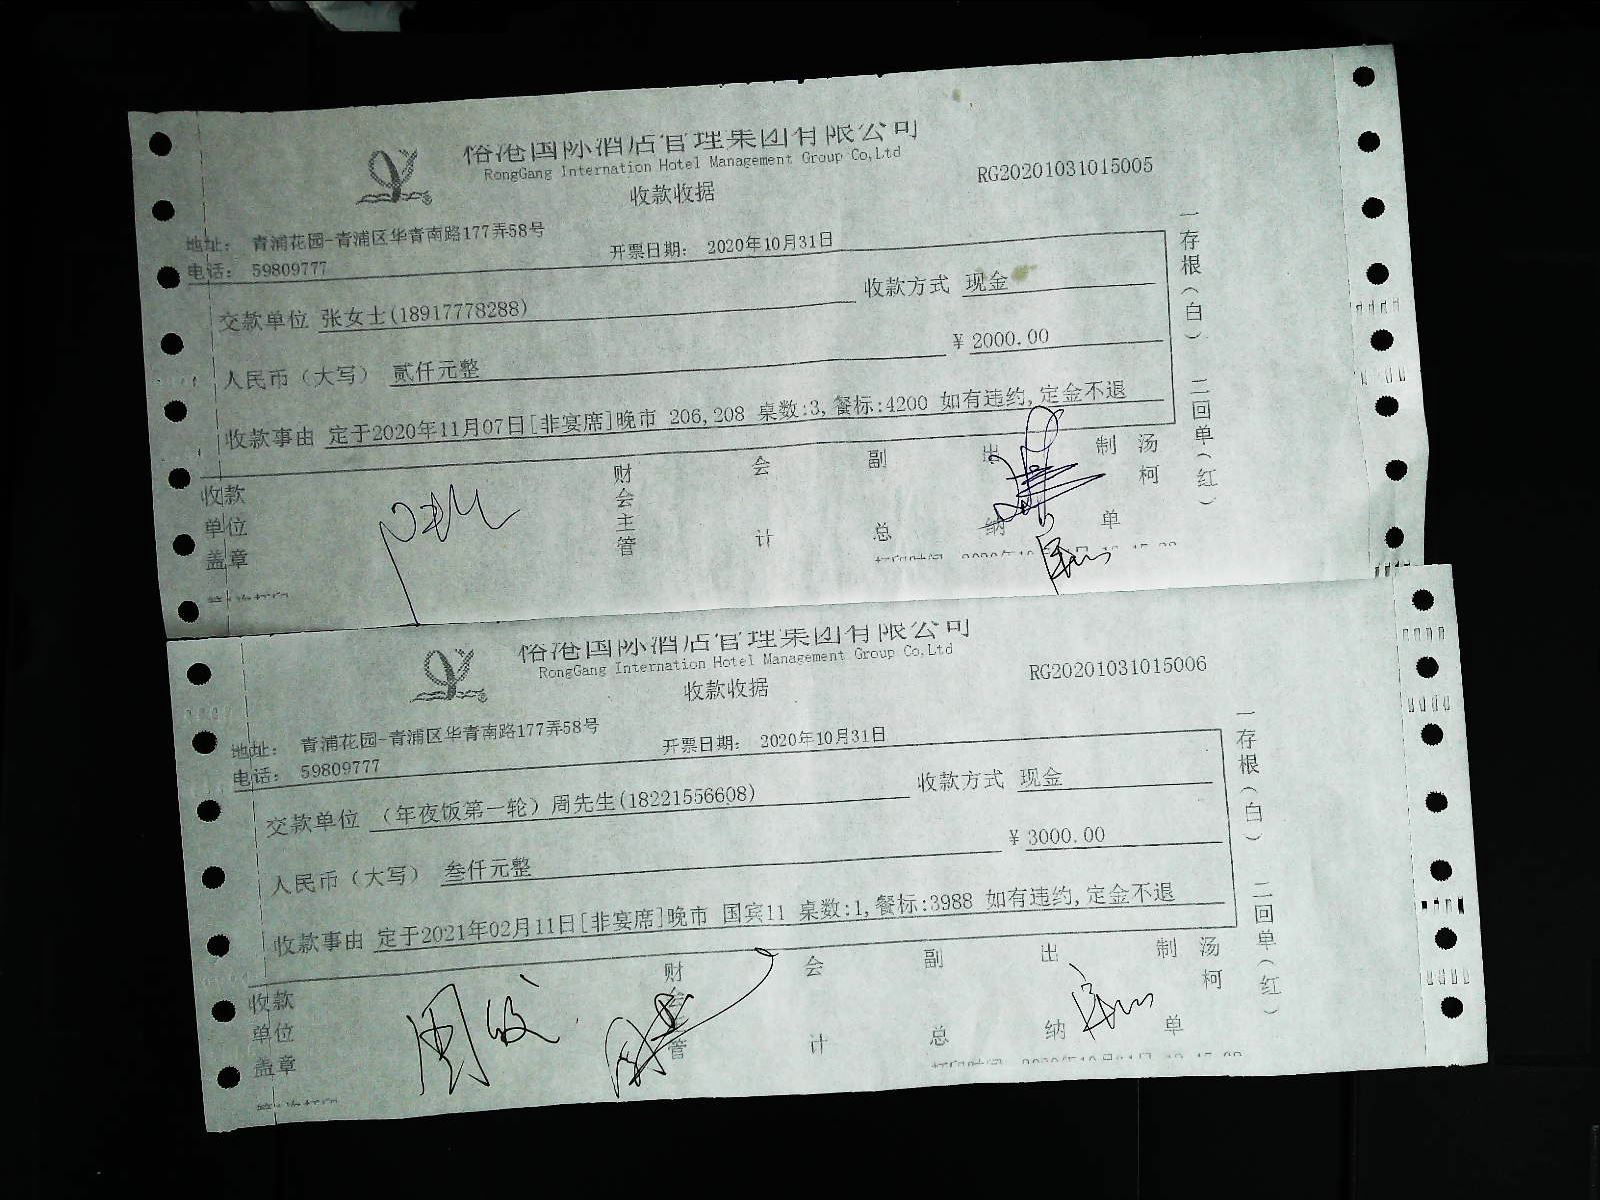 裕港国际酒店管理集团有限公司
RongGang Internation Hotel Management Group Co,Ltd
收款收据
RG20201031015005
地址: 青浦花园-青浦区华青南路177弄58号
电话: 59809777
开票日期: 2020年10月31日
交款单位 张女士(18917778288)
收款方式 现金
人民币（大写） 贰仟元整
¥2000.00
收款事由 定于2020年11月07日[非宴席]晚市 206,208 桌数:3,餐标:4200 如有违约,定金不退
收款单位盖章
财会主管
会计
副总
出纳
制单
汤柯
一存根(白) 二回单(红)
打印时间
裕港国际酒店管理集团有限公司
RongGang Internation Hotel Management Group Co,Ltd
收款收据
RG20201031015006
地址: 青浦花园-青浦区华青南路177弄58号
电话: 59809777
开票日期: 2020年10月31日
交款单位 （年夜饭第一轮）周先生(18221556608)
收款方式 现金
人民币（大写） 叁仟元整
¥3000.00
收款事由 定于2021年02月11日[非宴席]晚市 国宾11 桌数:1,餐标:3988 如有违约,定金不退
收款单位盖章
财会主管
会计
副总
出纳
制单
汤柯
一存根(白) 二回单(红)
打印时间